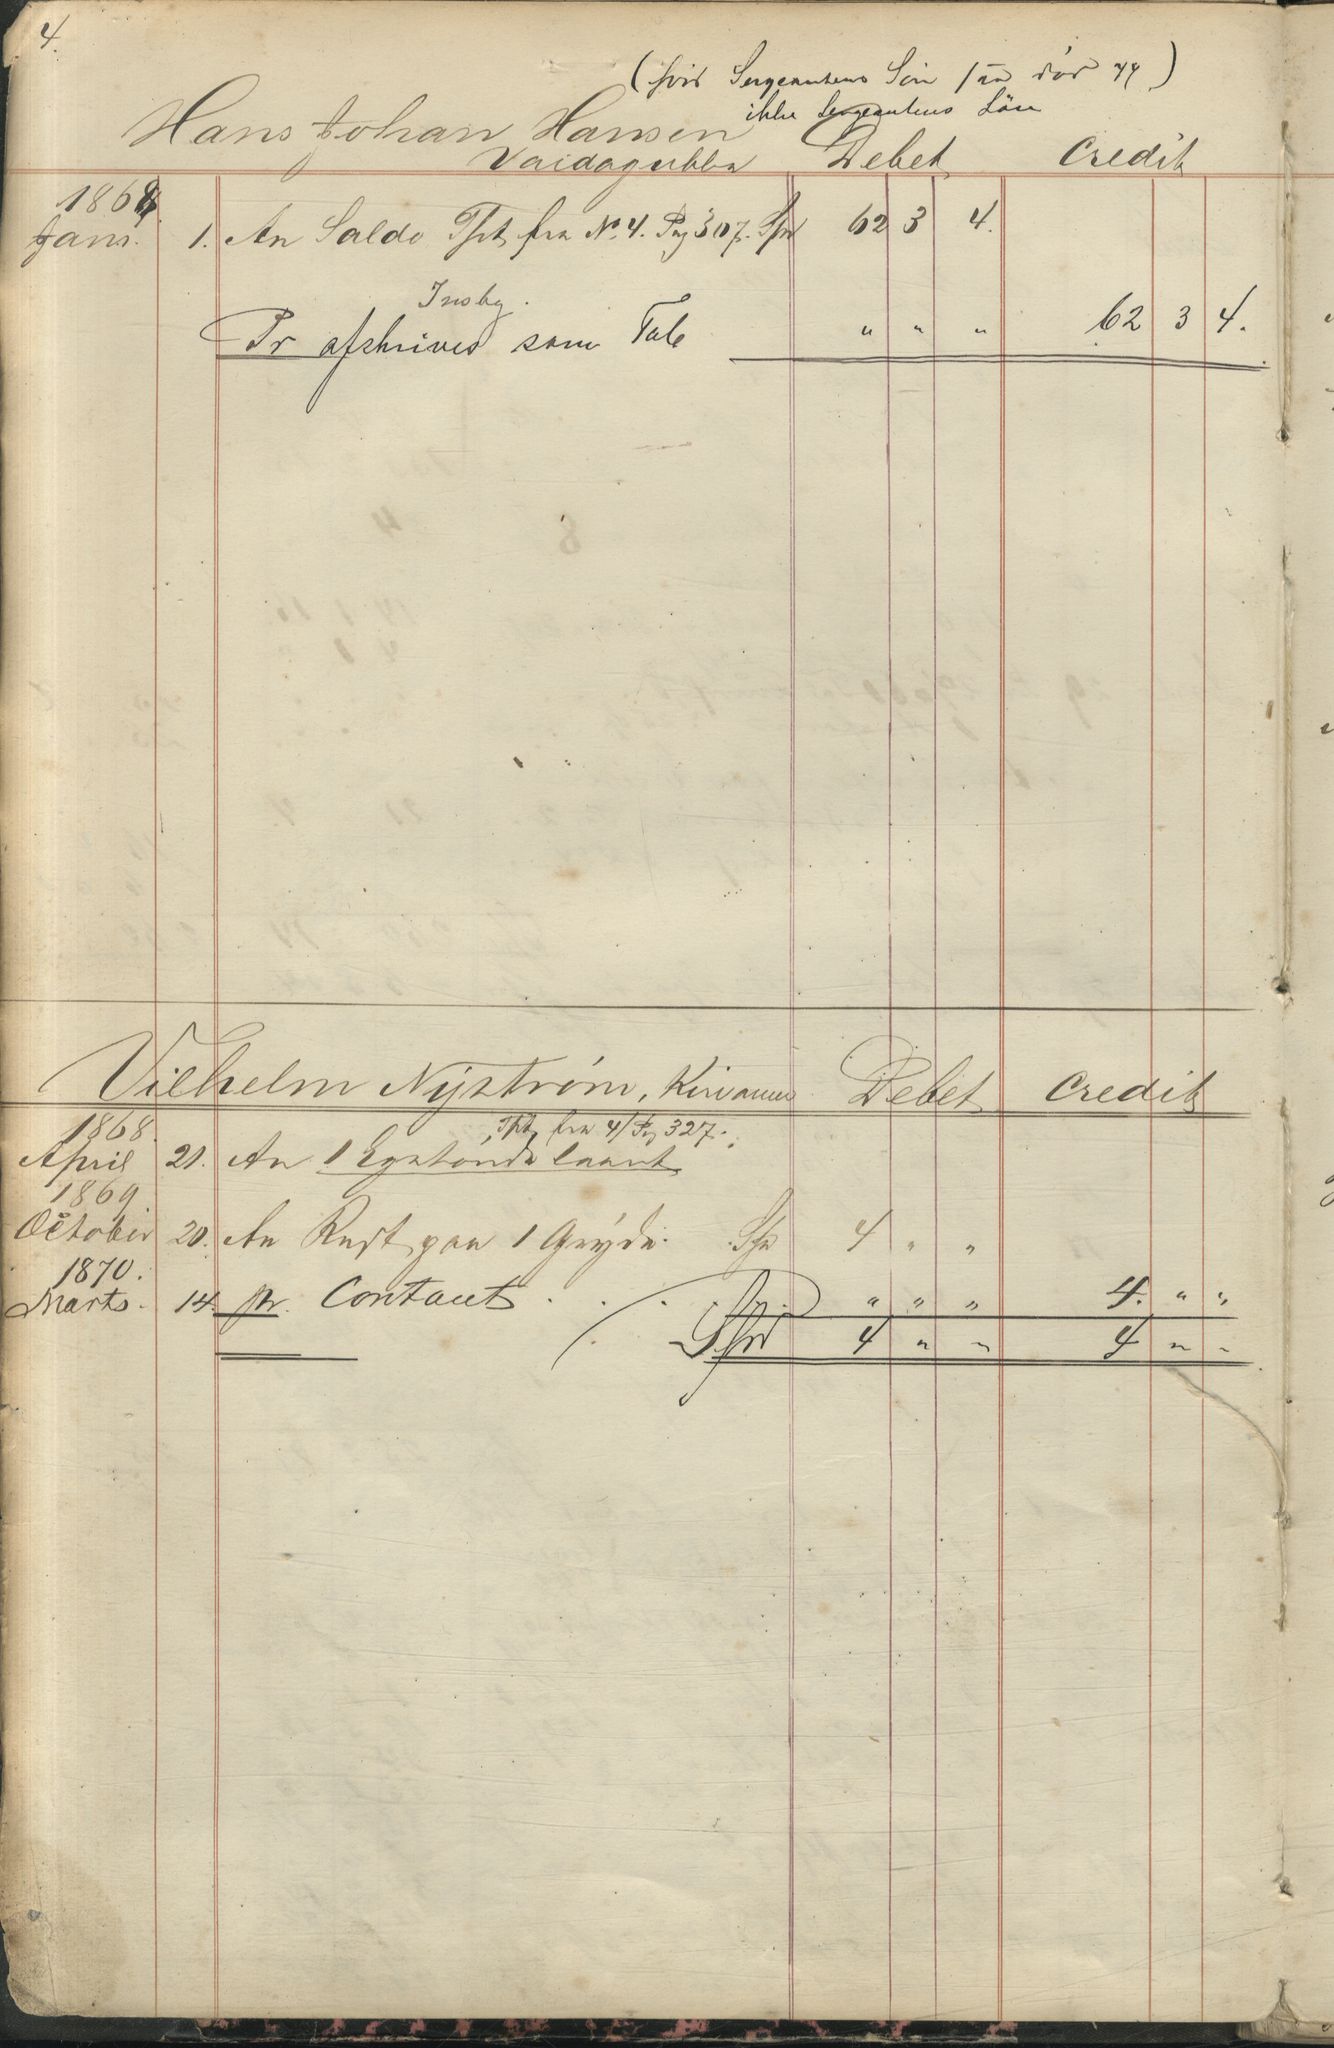 4.
( Sergeantens Sön 44 )
ikke Sergeantens Sön
Hans Johan Hansen
Vaidagubba Debet Credit
1868
Janr. 1. An Saldo Tpt fra No. 4. Pag 307. Spd 62 3 4.
Insbg.
Pr afskrives som Tab " " " 62 3 4.
Vilhelm Nyström, Kirvanes Debet Credit
1868.
Tpt fra 4/ Pag 327.
April 21. An 1 laant
1869
October 20. An Rest paa 1 Gryde. Spd 4 " "
1870.
Marts. 14. pr. Contant . . . " " " 4. " "
Spd 4 " " 4 " "